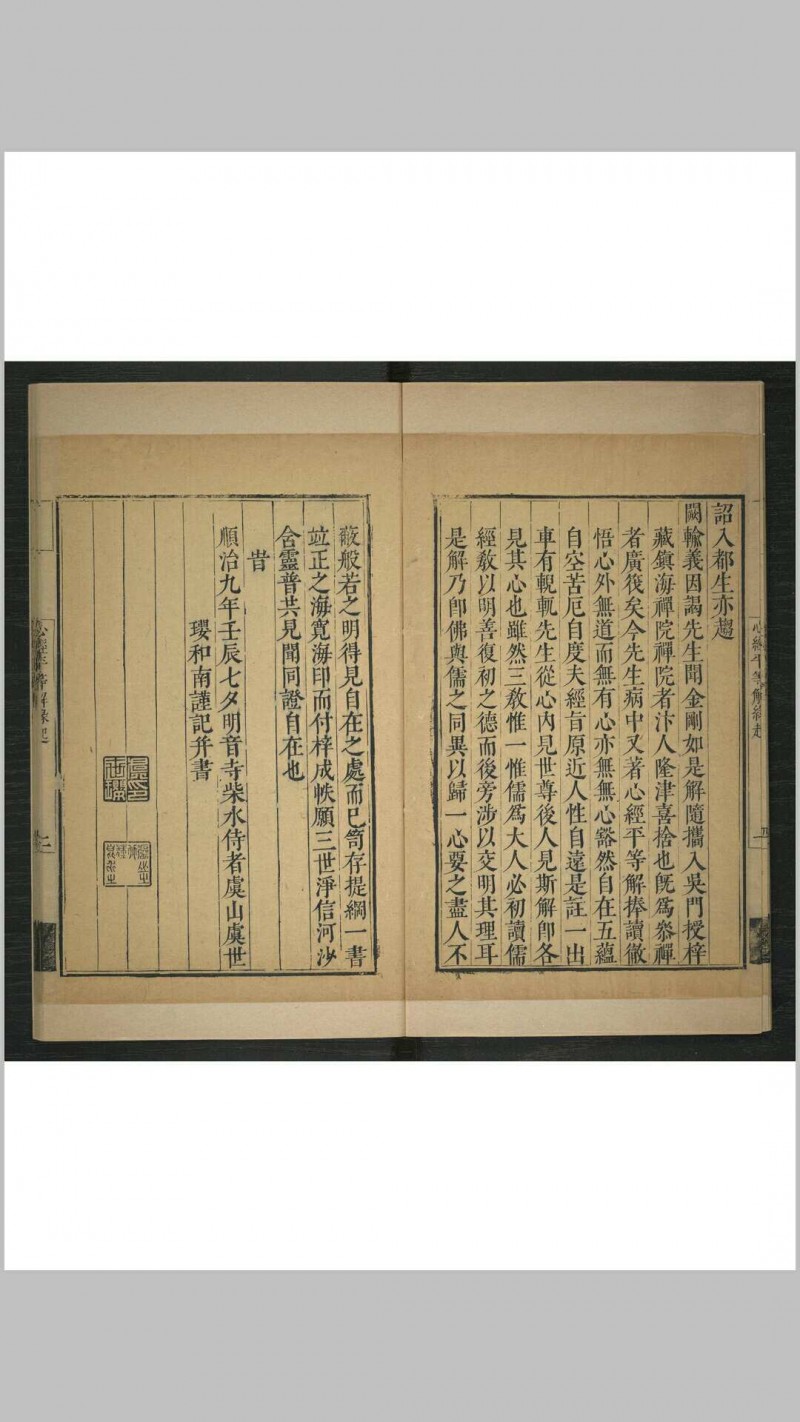 詔入都生亦趨
闕輸義因謁先生聞金剛如是解隨攜入吳門授梓
藏鎮海禪院禪院者汴人隆津喜捨也旣爲叅禪
者廣筏矣今先生病中又著心經平等解捧讀徹
悟心外無道而無有心亦無無心豁然自在五蘊
自空苦厄自度夫經盲原近人性自遠是註一出
車有輗軏先生從心內見世尊後人見斯解卽各
見其心也雖然三敎惟一惟儒爲大人必初讀儒
經敎以明善復初之德而後旁涉以交明其理耳
是解乃卽佛與儒之同異以歸一心要之盡人不
蔽般若之明得見自在之處而已笥存提綱一書
竝正之海寬海印而付梓成帙願三世淨信河沙
含靈普共見聞同證自在也
旹
順治九年壬辰七夕明音寺柴水侍者虞山虞世
瓔和南謹記幷書
心經平等解緣起
心經平等解緣起
二